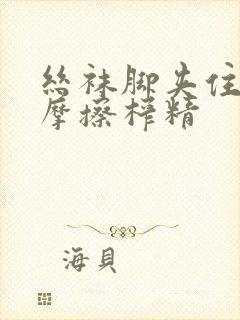 丝袜脚夹住
摩擦榨精
海貝